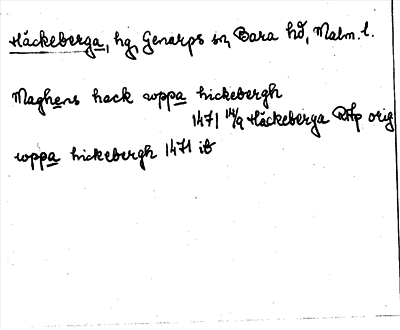 Häckeberga, hg, Genarps sn, Bara hd, Malm. l.
Maghens hack wppa hickebergh
1471 14/9 Häckeberga RAp orig
wppa hickebergh 1471 ib